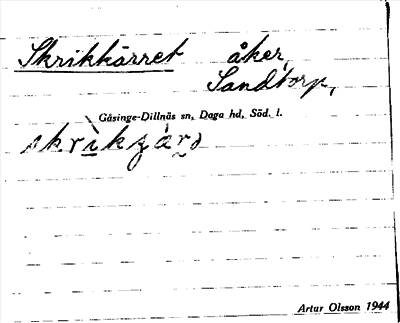 Skrikkärret åker,
Sandtorp,
Gåsinge-Dillnäs sn, Daga hd, Söd. l.
Artur Olsson 1944